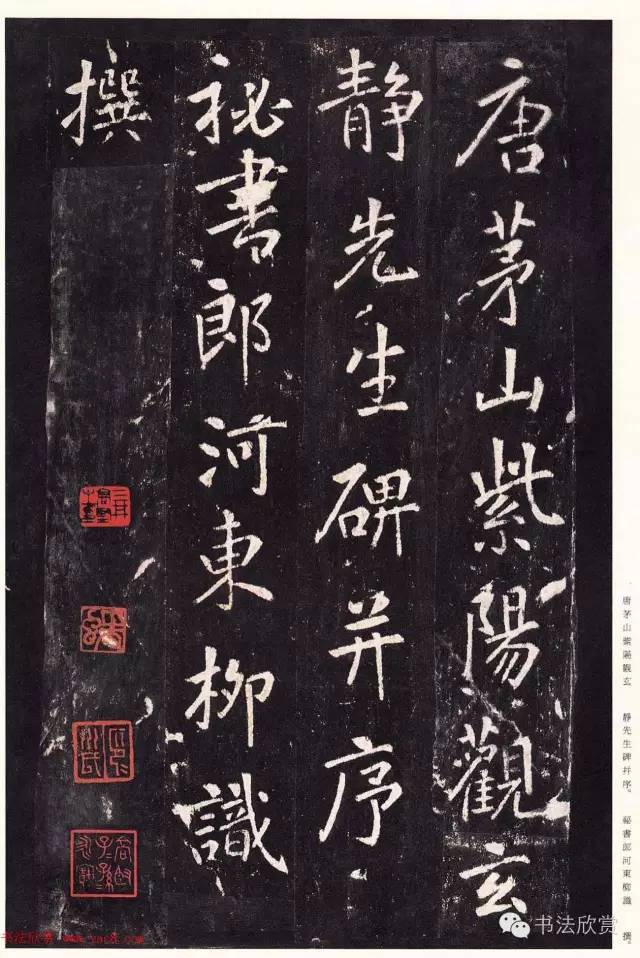 唐茅山紫陽觀玄
靜先生碑并序
祕書郎河東柳識
撰
唐茅山紫陽觀玄　靜先生碑并序。　祕書郎河東柳識　撰。
书法欣赏
书法欣赏 www.yac8.com